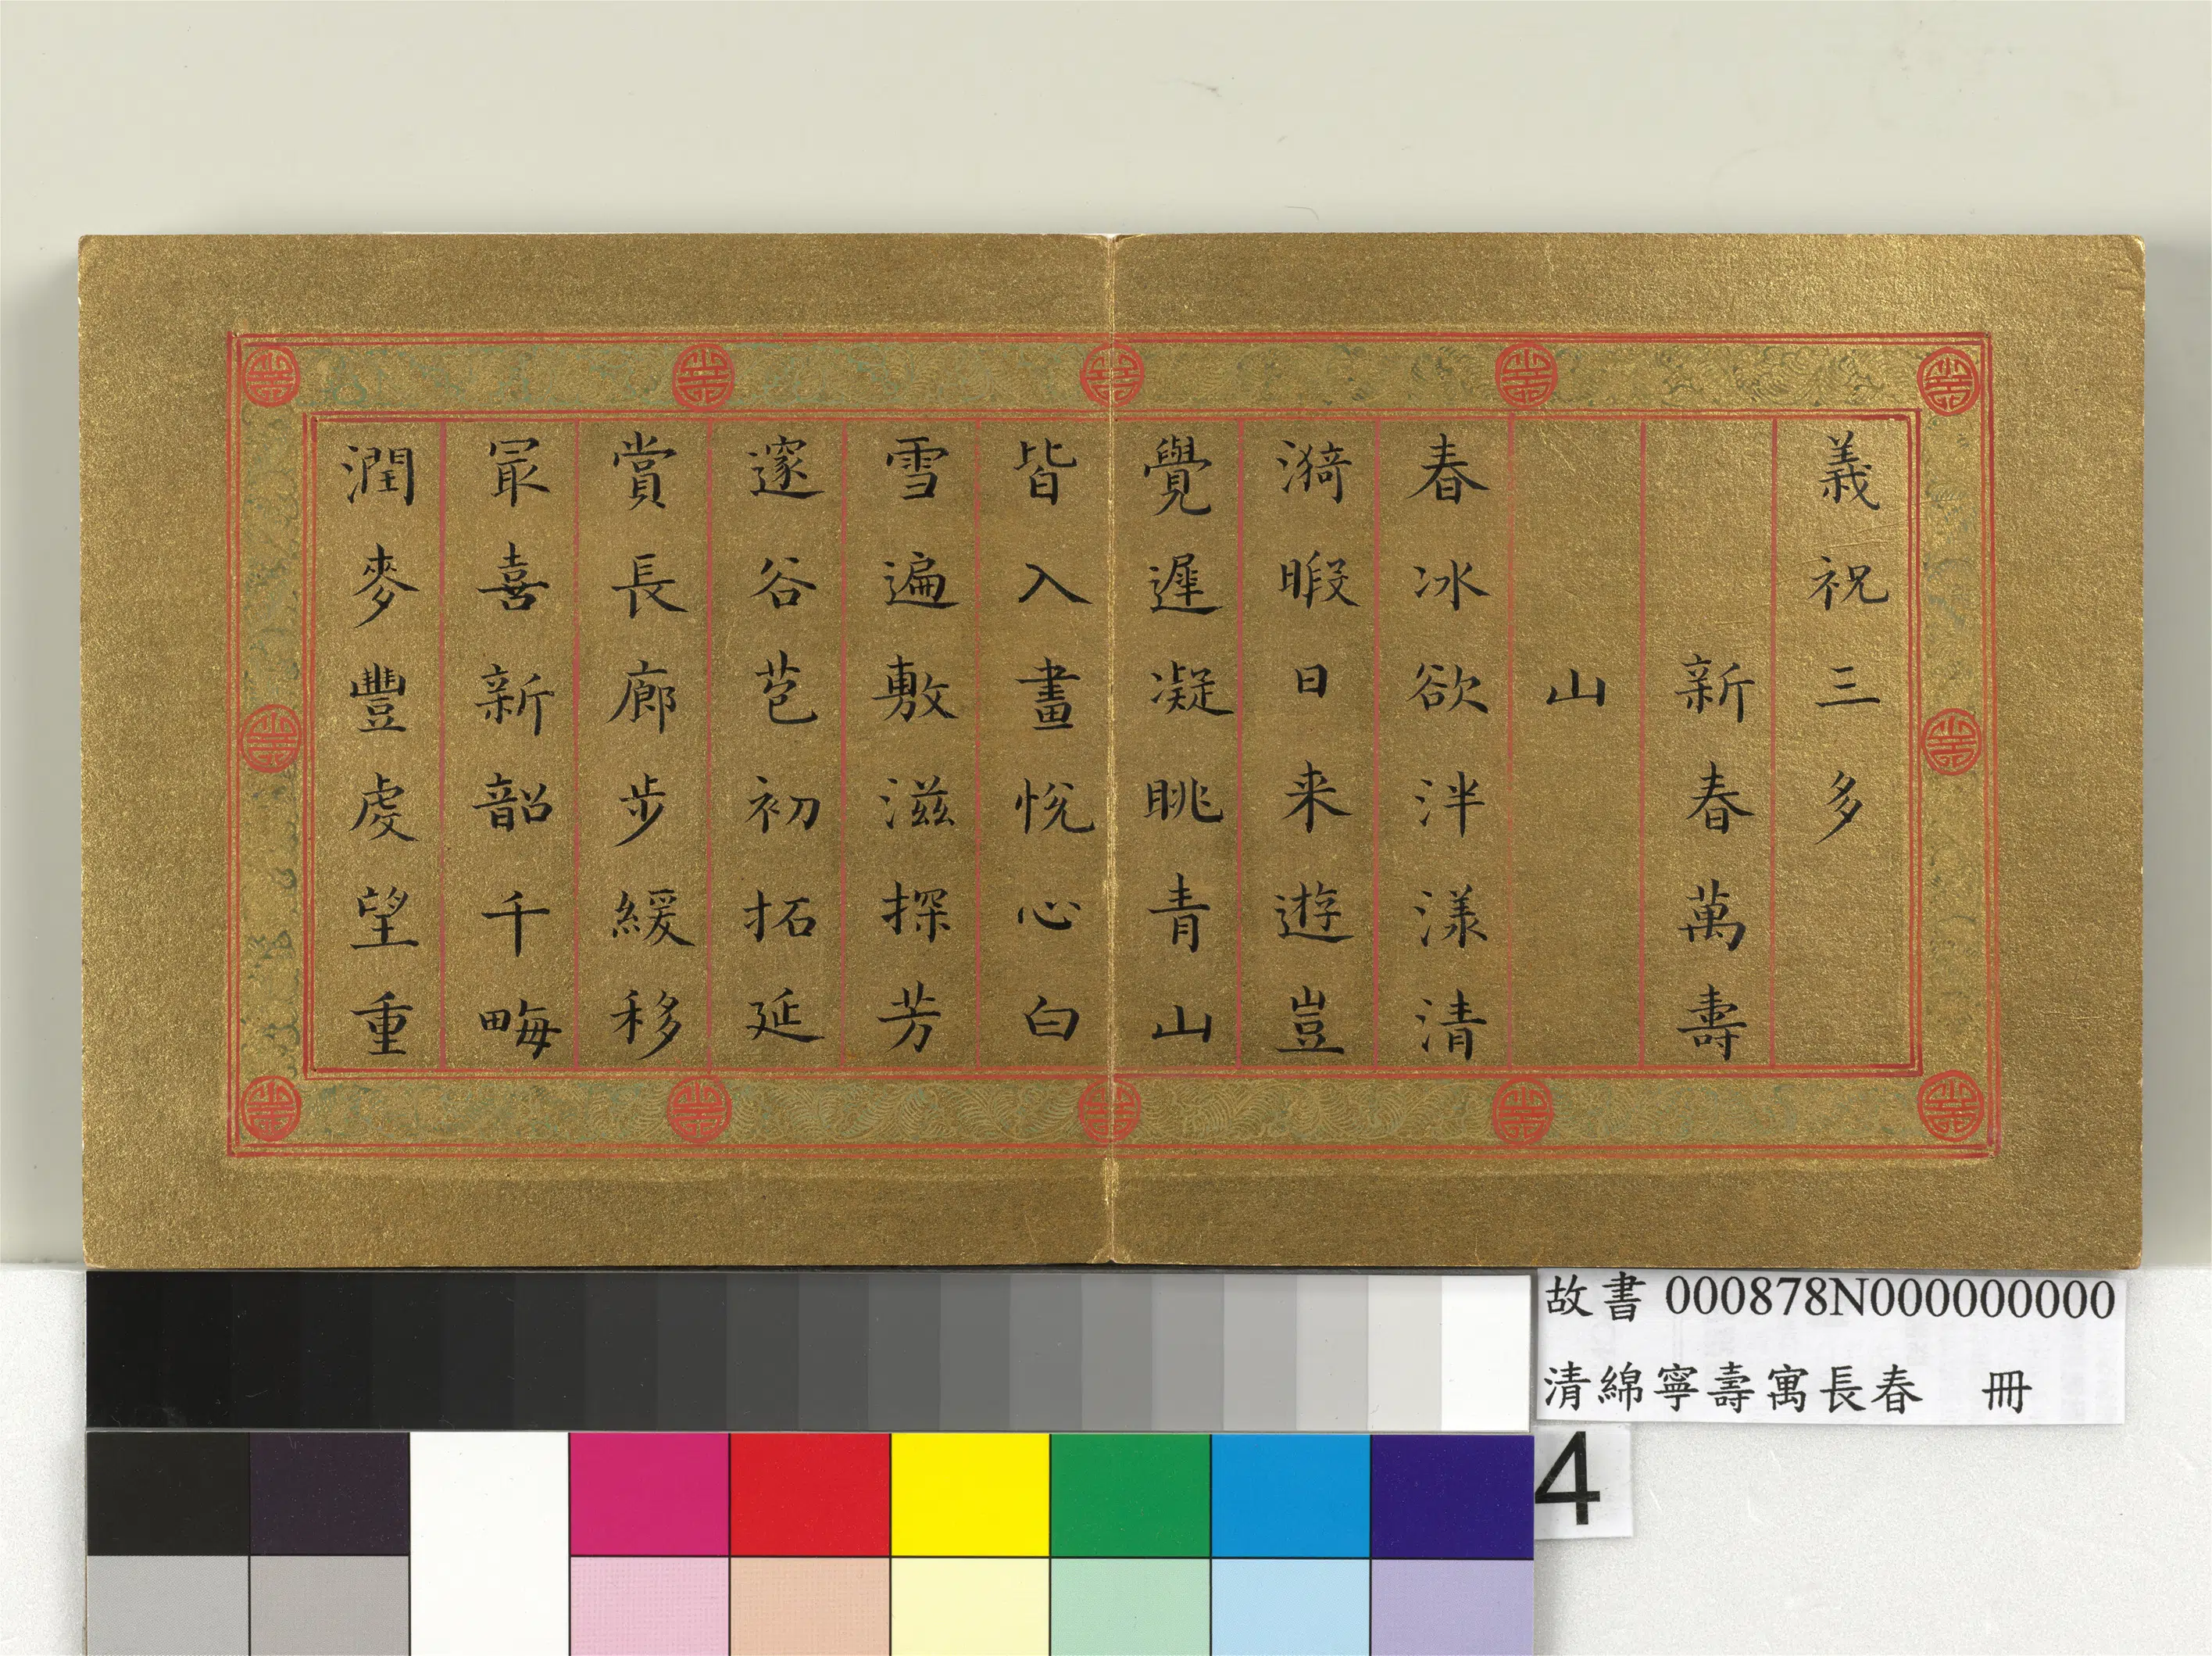 義祝三多
新春萬壽
山
春冰欲泮漾清
漪暇日来遊豈
覺遲凝眺青山
皆入畫悅心白
雪遍敷滋探芳
邃谷苞初拓延
賞長廊步緩移
冣喜新韶千畮
潤麥豐處望重
故書 000878N000000000
清綿寧壽寓長春 冊
4